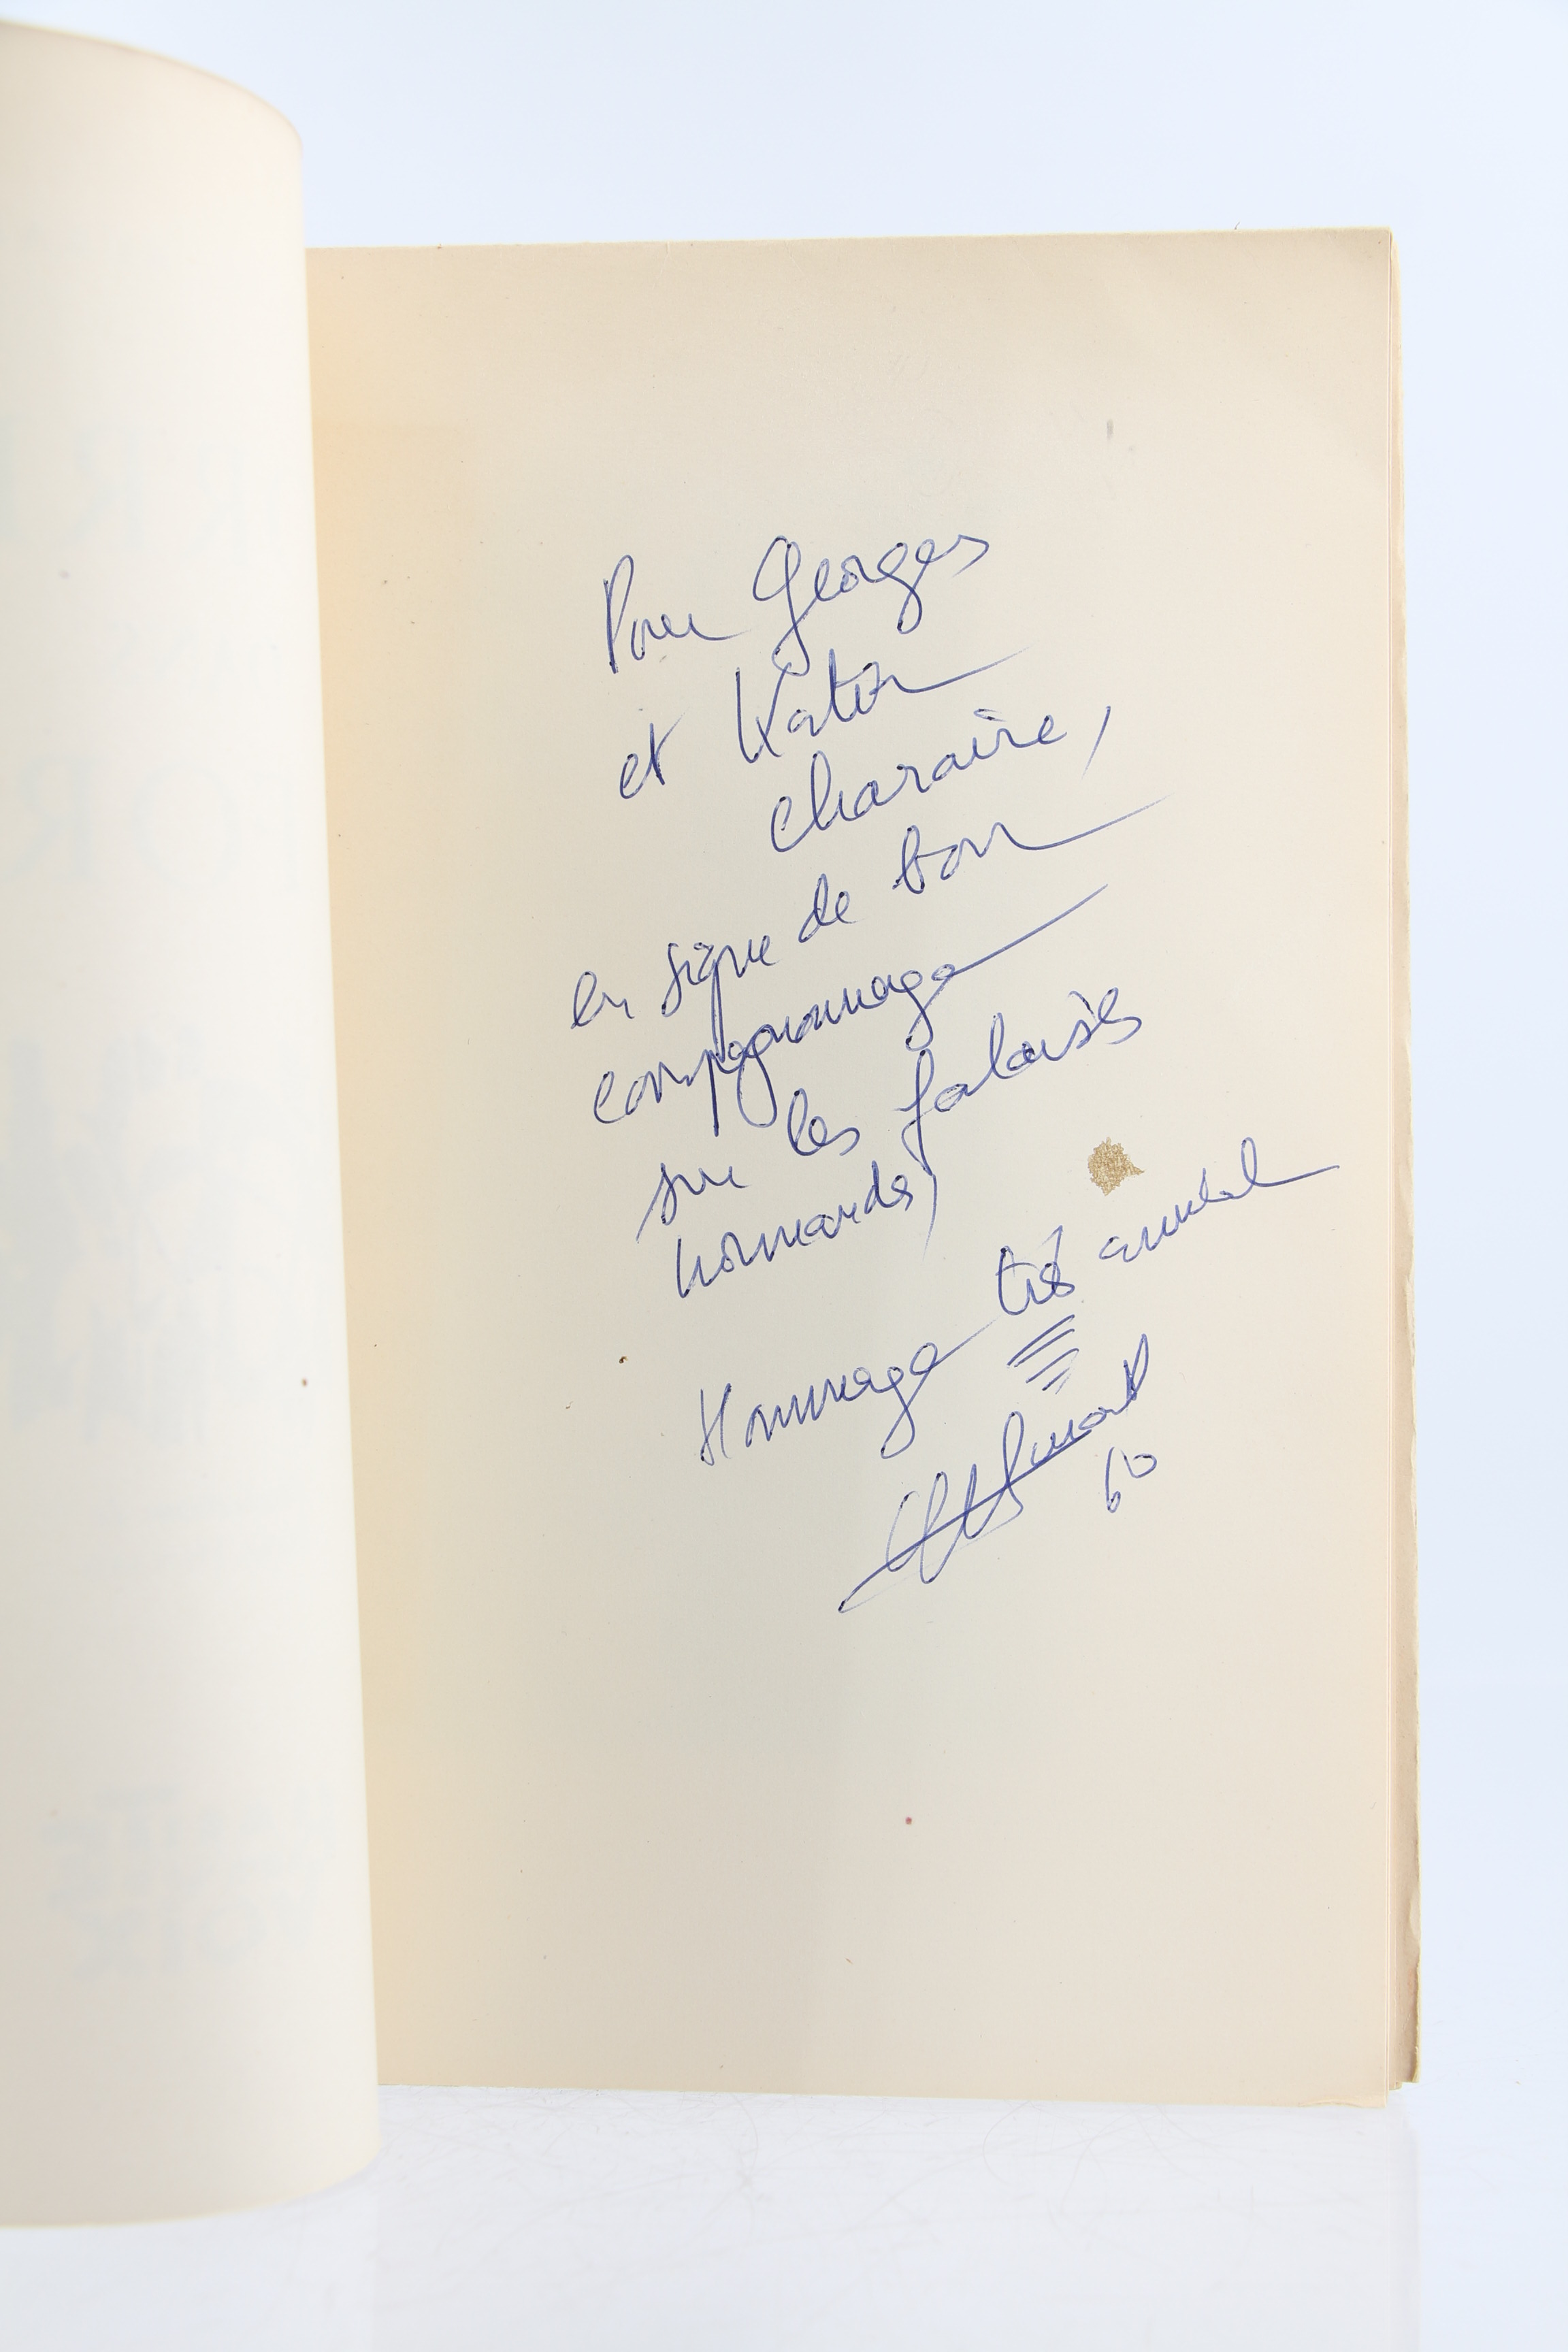 Pour Georges
et Katia
Charaire,
en signe de bon
compagnonnage
sur les falaises
normandes,
Hommage très amical
60